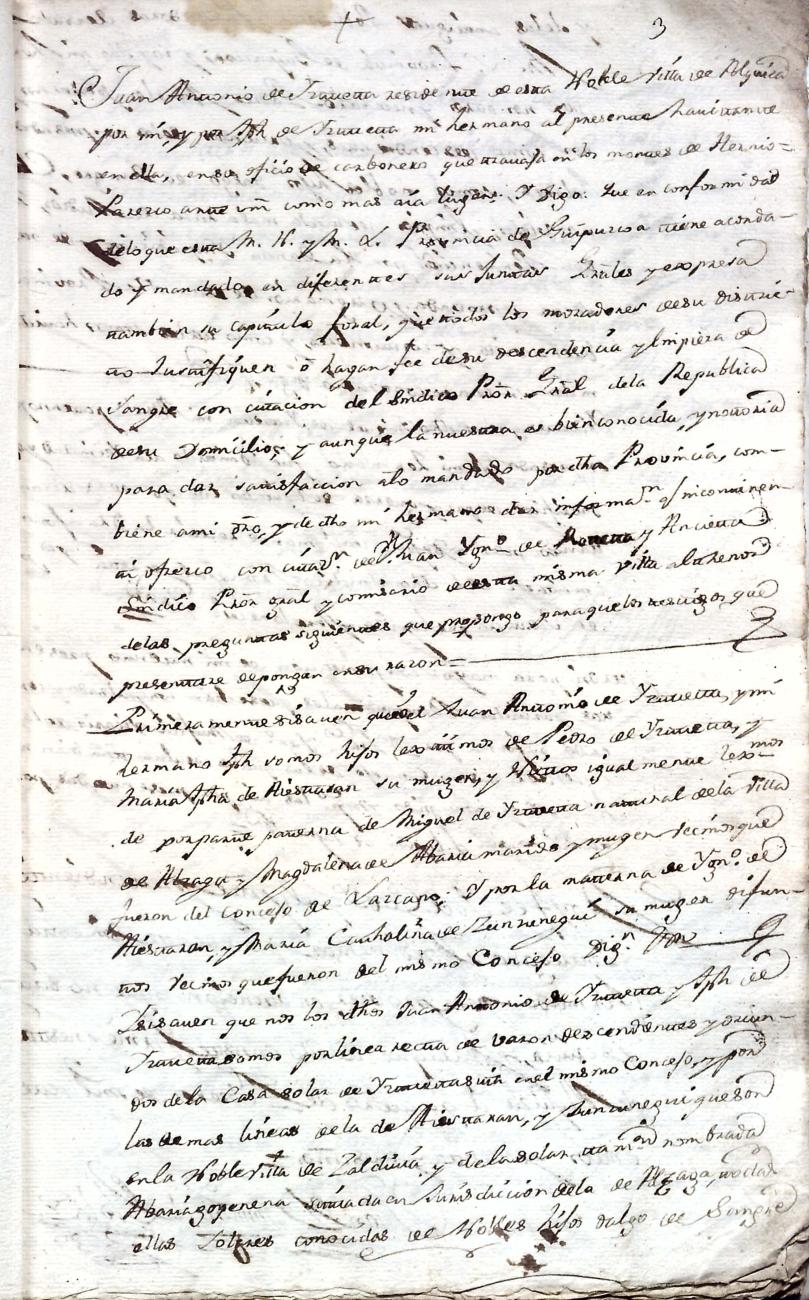 3
Juan Antonio de Yrruetta residente de esta Noble Villa de
por mi, y por Jph de Yrruetta mi hermano al presente havitante
en ella, en su oficio de carbonero que travaja en los montes de Hernio =
Parezco ante vm como mas aia lugar: Y Digo: que en conformidad
delo que esta M. N. y M. L. Provincia de Guipuzcoa tiene acorda-
do y mandado en diferentes sus Juntas Grales y expresa
tambien su capitulo foral, que todos los moradores de su distri-
to Justifiquen ô hagan fee de su descendencia y limpieza de
sangre con citacion del Sindico Pror Gral dela Republica
de su Domicilio; y aunque la nuestra es bien conocida, y nottoria
para dar satisfaccion alo mandado por dha Provincia, com-
biene ami dro, y de dho mi hermano dar informan. q incontinen-
ti ofrezco con citazn. de Juan Ygno. de y Ancietta
Sindico Pror gral y comisario de esta misma villa al thenor
delas preguntas siguientes que propongo para que los testigos que
presentare depongan en su razon =
Primeramente si saven que el Juan Antonio de Yrruetta, y mi
hermano Jph somos hijos lexitimos de Pedro de Yrruetta, y
Maria Jpha de Aiestaran su muger, y Nietos igualmente lexmos
de por parte paterna de Miguel de Yrruetta natural de la Villa
de Alzaga y Magdalena de Abaria marido y muger vecinos que
fueron del Concejo de Lazcano; Y por la materna de Ygno. de
Aiestaran, y Maria Cathalina de Zunzunegui su muger difun-
tos vecinos que fueron del mismo Concejo Dign.
Y si saven que nos los dhos Juan Antonio de Yrruetta y Jph de
Yrruetta somos por linea recta de varon descendientes y oriun-
dos de la Casa solar de Yrruetta sita en el mismo Concejo, y por
las demas lineas de la de Aiestaran, y Zunzunegui que son
en la Noble villa de Zaldivia y de la solar tamn. nombrada
Abariagoyenena situada en Jurisdicion dela de Alzaga, todas
ellas Solares conocidas de Nobles hijos dalgo de Sangre